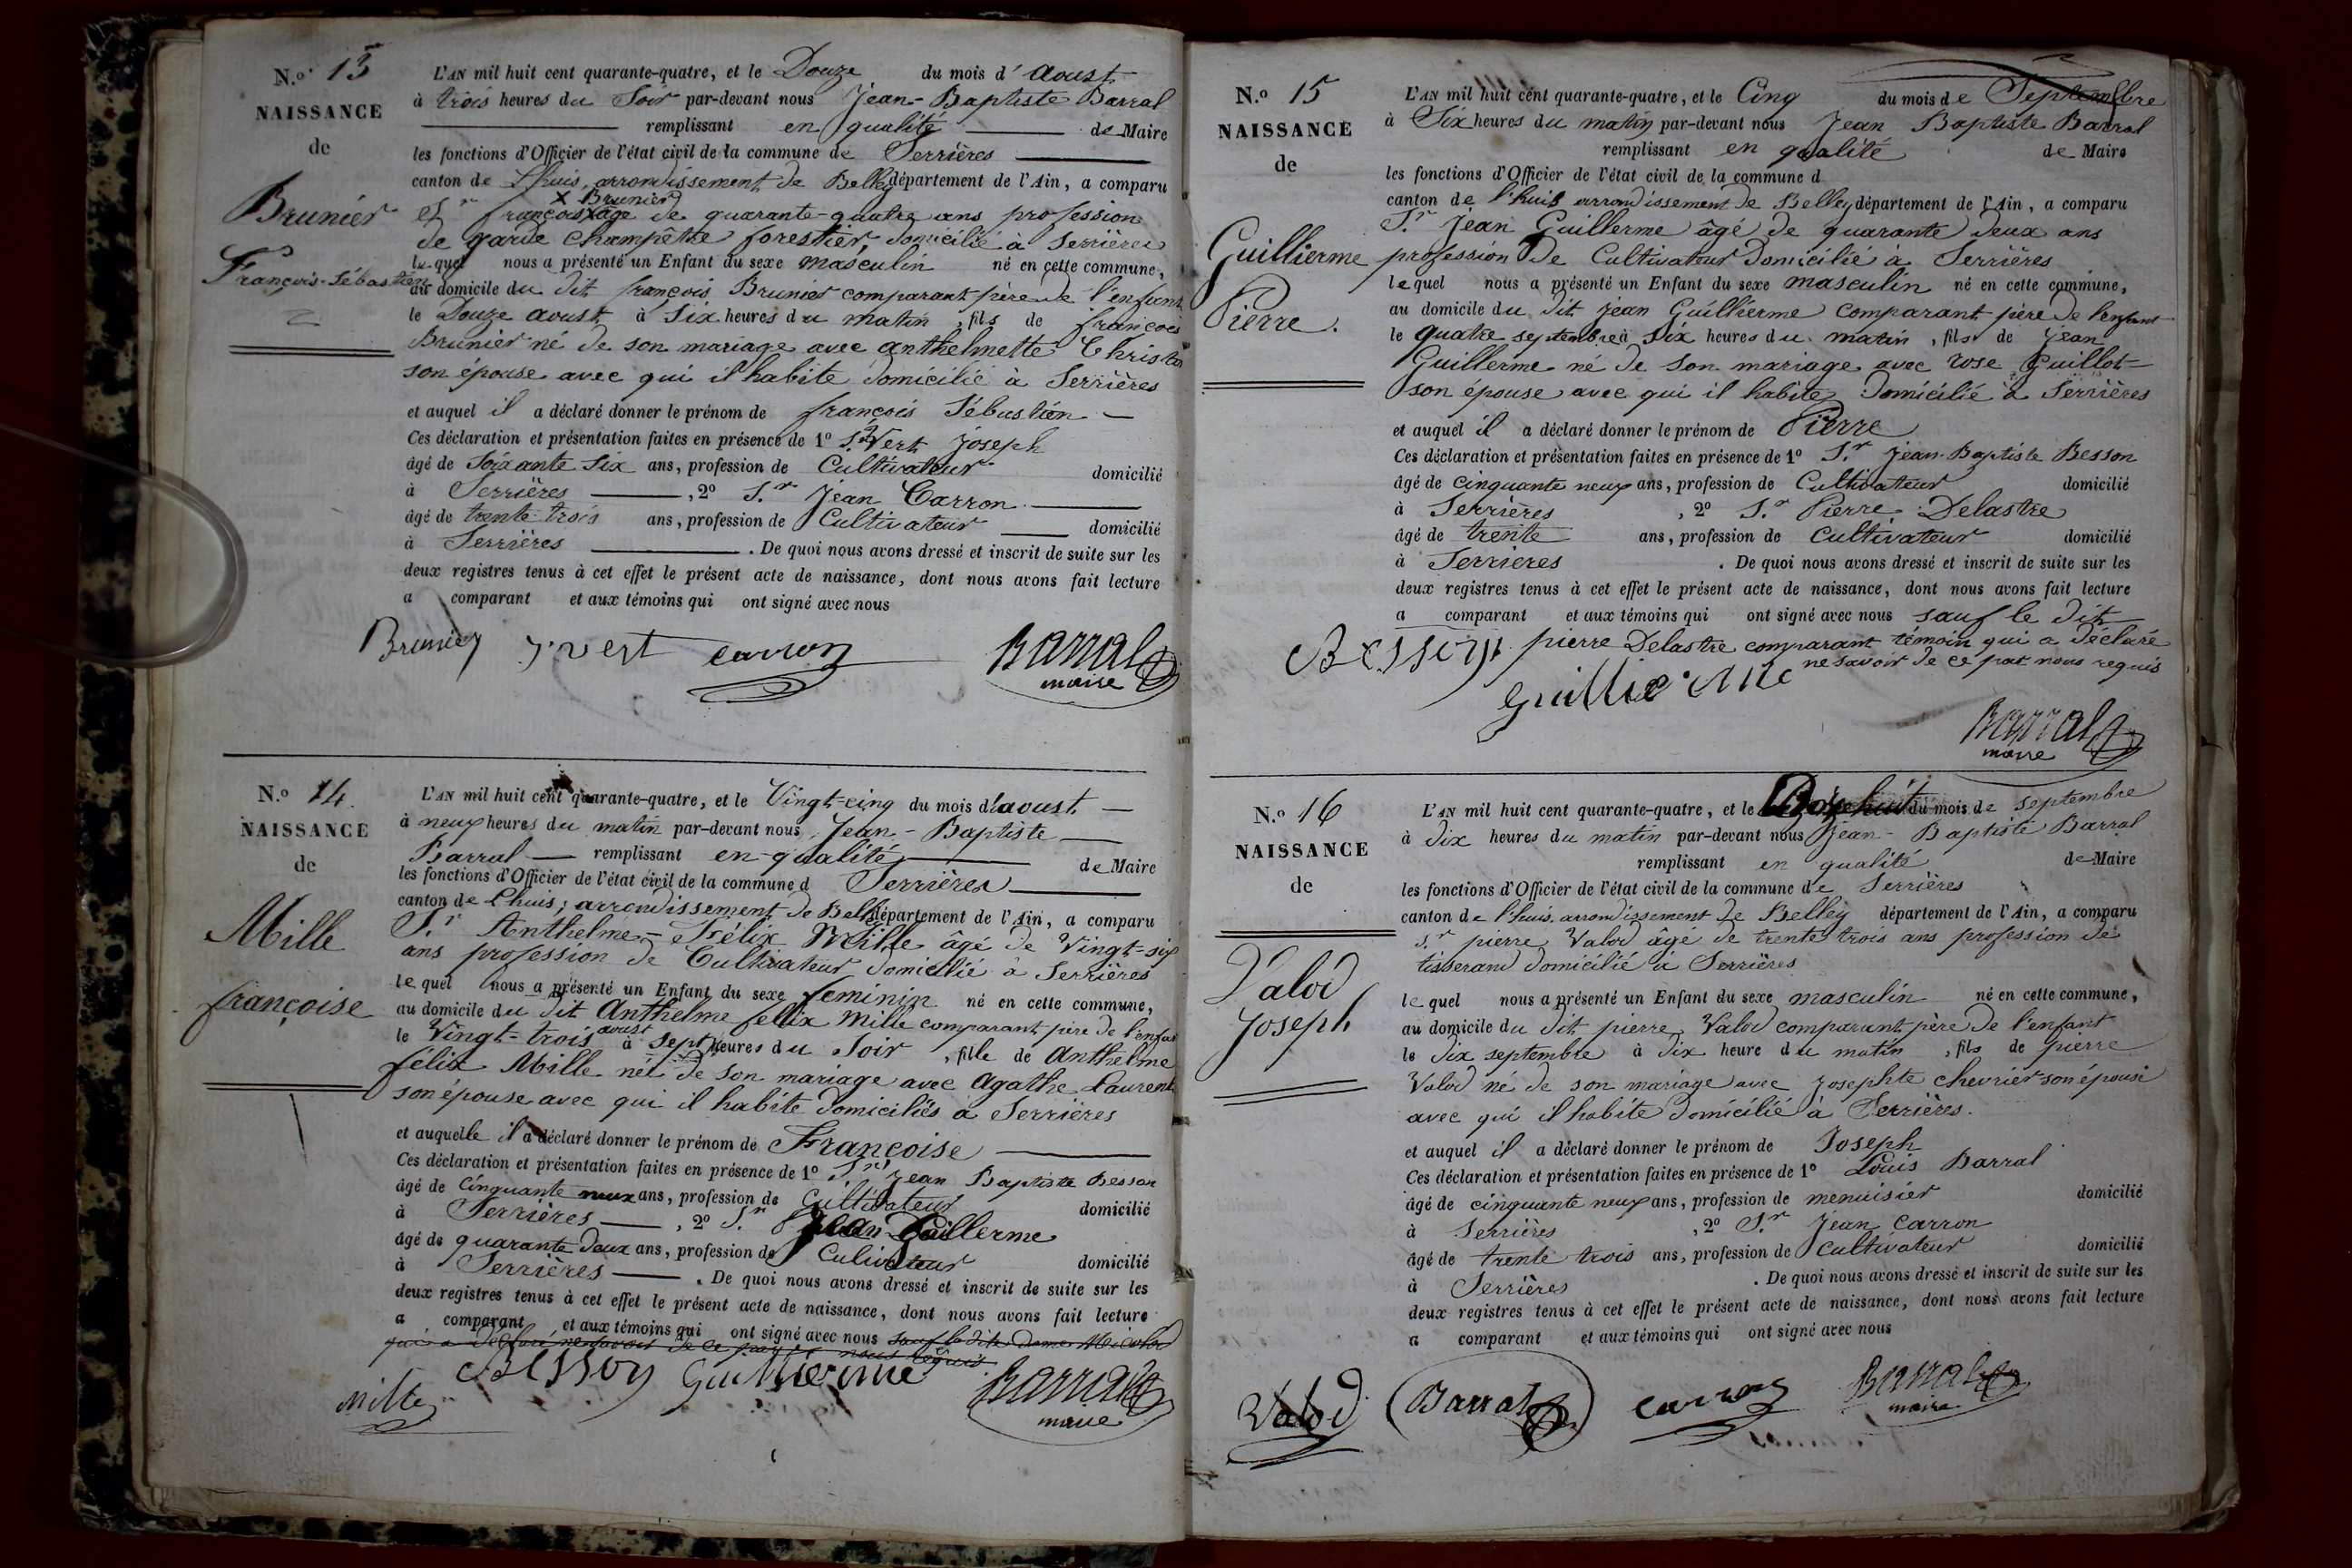 N.º 13
NAISSANCE
de
Brunier
François-Sébastien
L'AN mil huit cent quarante-quatre, et le Douze du mois d' aoust
à trois heures du Soir par-devant nous Jean-Baptiste Barral
remplissant en qualité de Maire
les fonctions d'Officier de l'état civil de la commune de Serrières
canton de Lhuis, arrondissement de Belley département de l'Ain, a comparu
x Brunier
françois x âgé de quarante-quatre ans profession
de garde champêtre forestier, domicilié à Serrières
le quel nous a présenté un Enfant du sexe masculin né en cette commune,
au domicile du dit françois Brunier comparant père de l'enfant
le Douze aoust à Six heures du matin, fils de françois
Brunier né de son mariage avec anthelmette
son épouse avec qui il habite domicilié à Serrières
et auquel il a déclaré donner le prénom de françois Sébastien
Ces déclaration et présentation faites en présence de 1º Sr Vert Joseph
âgé de Soixante Six ans, profession de Cultivateur domicilié
à Serrières, 2º S.r Jean Carron
âgé de trente trois ans, profession de Cultivateur domicilié
à Serrières. De quoi nous avons dressé et inscrit de suite sur les
deux registres tenus à cet effet le présent acte de naissance, dont nous avons fait lecture
a comparant et aux témoins qui ont signé avec nous
Brunier J vert carron Barral
maire
N.º 14.
NAISSANCE
de
Mille
françoise
L'AN mil huit cent quarante-quatre, et le Vingt-cinq du mois d'aoust
à neuf heures du matin par-devant nous Jean-Baptiste
Barral remplissant en qualité de Maire
les fonctions d'Officier de l'état civil de la commune d Serrières
canton de Lhuis; arrondissement de Belley département de l'Ain, a comparu
S.r Anthelme-Félix Mille âgé de Vingt-six
ans profession de Cultivateur domicilié à Serrières
le quel nous a présenté un Enfant du sexe feminin né en cette commune,
au domicile du dit Anthelme fellix Mille comparant père de l'enfant
aoust
le Vingt-trois à sept heures du Soir, fille de Anthelme
félix Mille né de son mariage avec Agathe Laurent
son épouse avec qui il habite domiciliés à Serrières
et auquelle il a déclaré donner le prénom de Françoise
Ces déclaration et présentation faites en présence de 1º S.r Jean Baptiste Besson
âgé de Cinquante neuf ans, profession de Cultivateur domicilié
à Serrières, 2º S.r Jean Guillerme
âgé de quarante deux ans, profession de Culivateur domicilié
à Serrières. De quoi nous avons dressé et inscrit de suite sur les
deux registres tenus à cet effet le présent acte de naissance, dont nous avons fait lecture
a comparant et aux témoins qui ont signé avec nous sauf la dite dame
qui a déclaré ne savoir de ce par nous requis
Besson Guillierme Barral
Mille maire
N.º 15
NAISSANCE
de
Guillierme
Pierre.
L'AN mil huit cent quarante-quatre, et le Cinq du mois de Septembre
à Six heures du matin par-devant nous Jean Baptiste Barral
remplissant en qualité de Maire
les fonctions d'Officier de l'état civil de la commune d
canton de l'huis arrondissement de Belley département de l'Ain, a comparu
S.r Jean Guillerme âgé de quarante deux ans
profession de Cultivateur domicilié à Serrières
le quel nous a présenté un Enfant du sexe masculin né en cette commune,
au domicile du dit Jean Guillierme comparant père de l'enfant
le quatre septembre à Six heures du matin, fils de Jean
Guillerme né de son mariage avec rose Guillot
son épouse avec qui il habite domicilié à Serrières
et auquel il a déclaré donner le prénom de Pierre
Ces déclaration et présentation faites en présence de 1º S.r Jean-Baptiste Besson
âgé de Cinquante neuf ans, profession de Cultivateur domicilié
à Serrières, 2º S.r Pierre Delastre
âgé de trente ans, profession de Cultivateur domicilié
à Serrières. De quoi nous avons dressé et inscrit de suite sur les
deux registres tenus à cet effet le présent acte de naissance, dont nous avons fait lecture
a comparant et aux témoins qui ont signé avec nous sauf le dit
Besson pierre Delastre comparant témoin qui a déclaré
ne savoir de ce par nous requis
Guillierme
Barral
maire
N.º 16
NAISSANCE
de
Valod
Joseph
L'AN mil huit cent quarante-quatre, et le du mois de septembre
à dix heures du matin par-devant nous Jean-Baptiste Barral
remplissant en qualité de Maire
les fonctions d'Officier de l'état civil de la commune de Serrières
canton de l'huis arrondissement de Belley département de l'Ain, a comparu
S.r pierre Valod âgé de trente trois ans profession de
tisserand domicilié à Serrières
le quel nous a présenté un Enfant du sexe masculin né en cette commune,
au domicile du dit pierre Valod comparant père de l'enfant
le dix septembre à dix heure du matin, fils de pierre
Valod né de son mariage avec Josephte chevrier son épouse
avec qui il habite domicilié à Serrières.
et auquel il a déclaré donner le prénom de Joseph
Ces déclaration et présentation faites en présence de 1º Louis Barral
âgé de cinquante neuf ans, profession de menuisier domicilié
à Serrières, 2º S.r Jean Carron
âgé de trente trois ans, profession de Cultivateur domicilié
à Serrières. De quoi nous avons dressé et inscrit de suite sur les
deux registres tenus à cet effet le présent acte de naissance, dont nous avons fait lecture
a comparant et aux témoins qui ont signé avec nous
Valod Barral carron Barral
maire